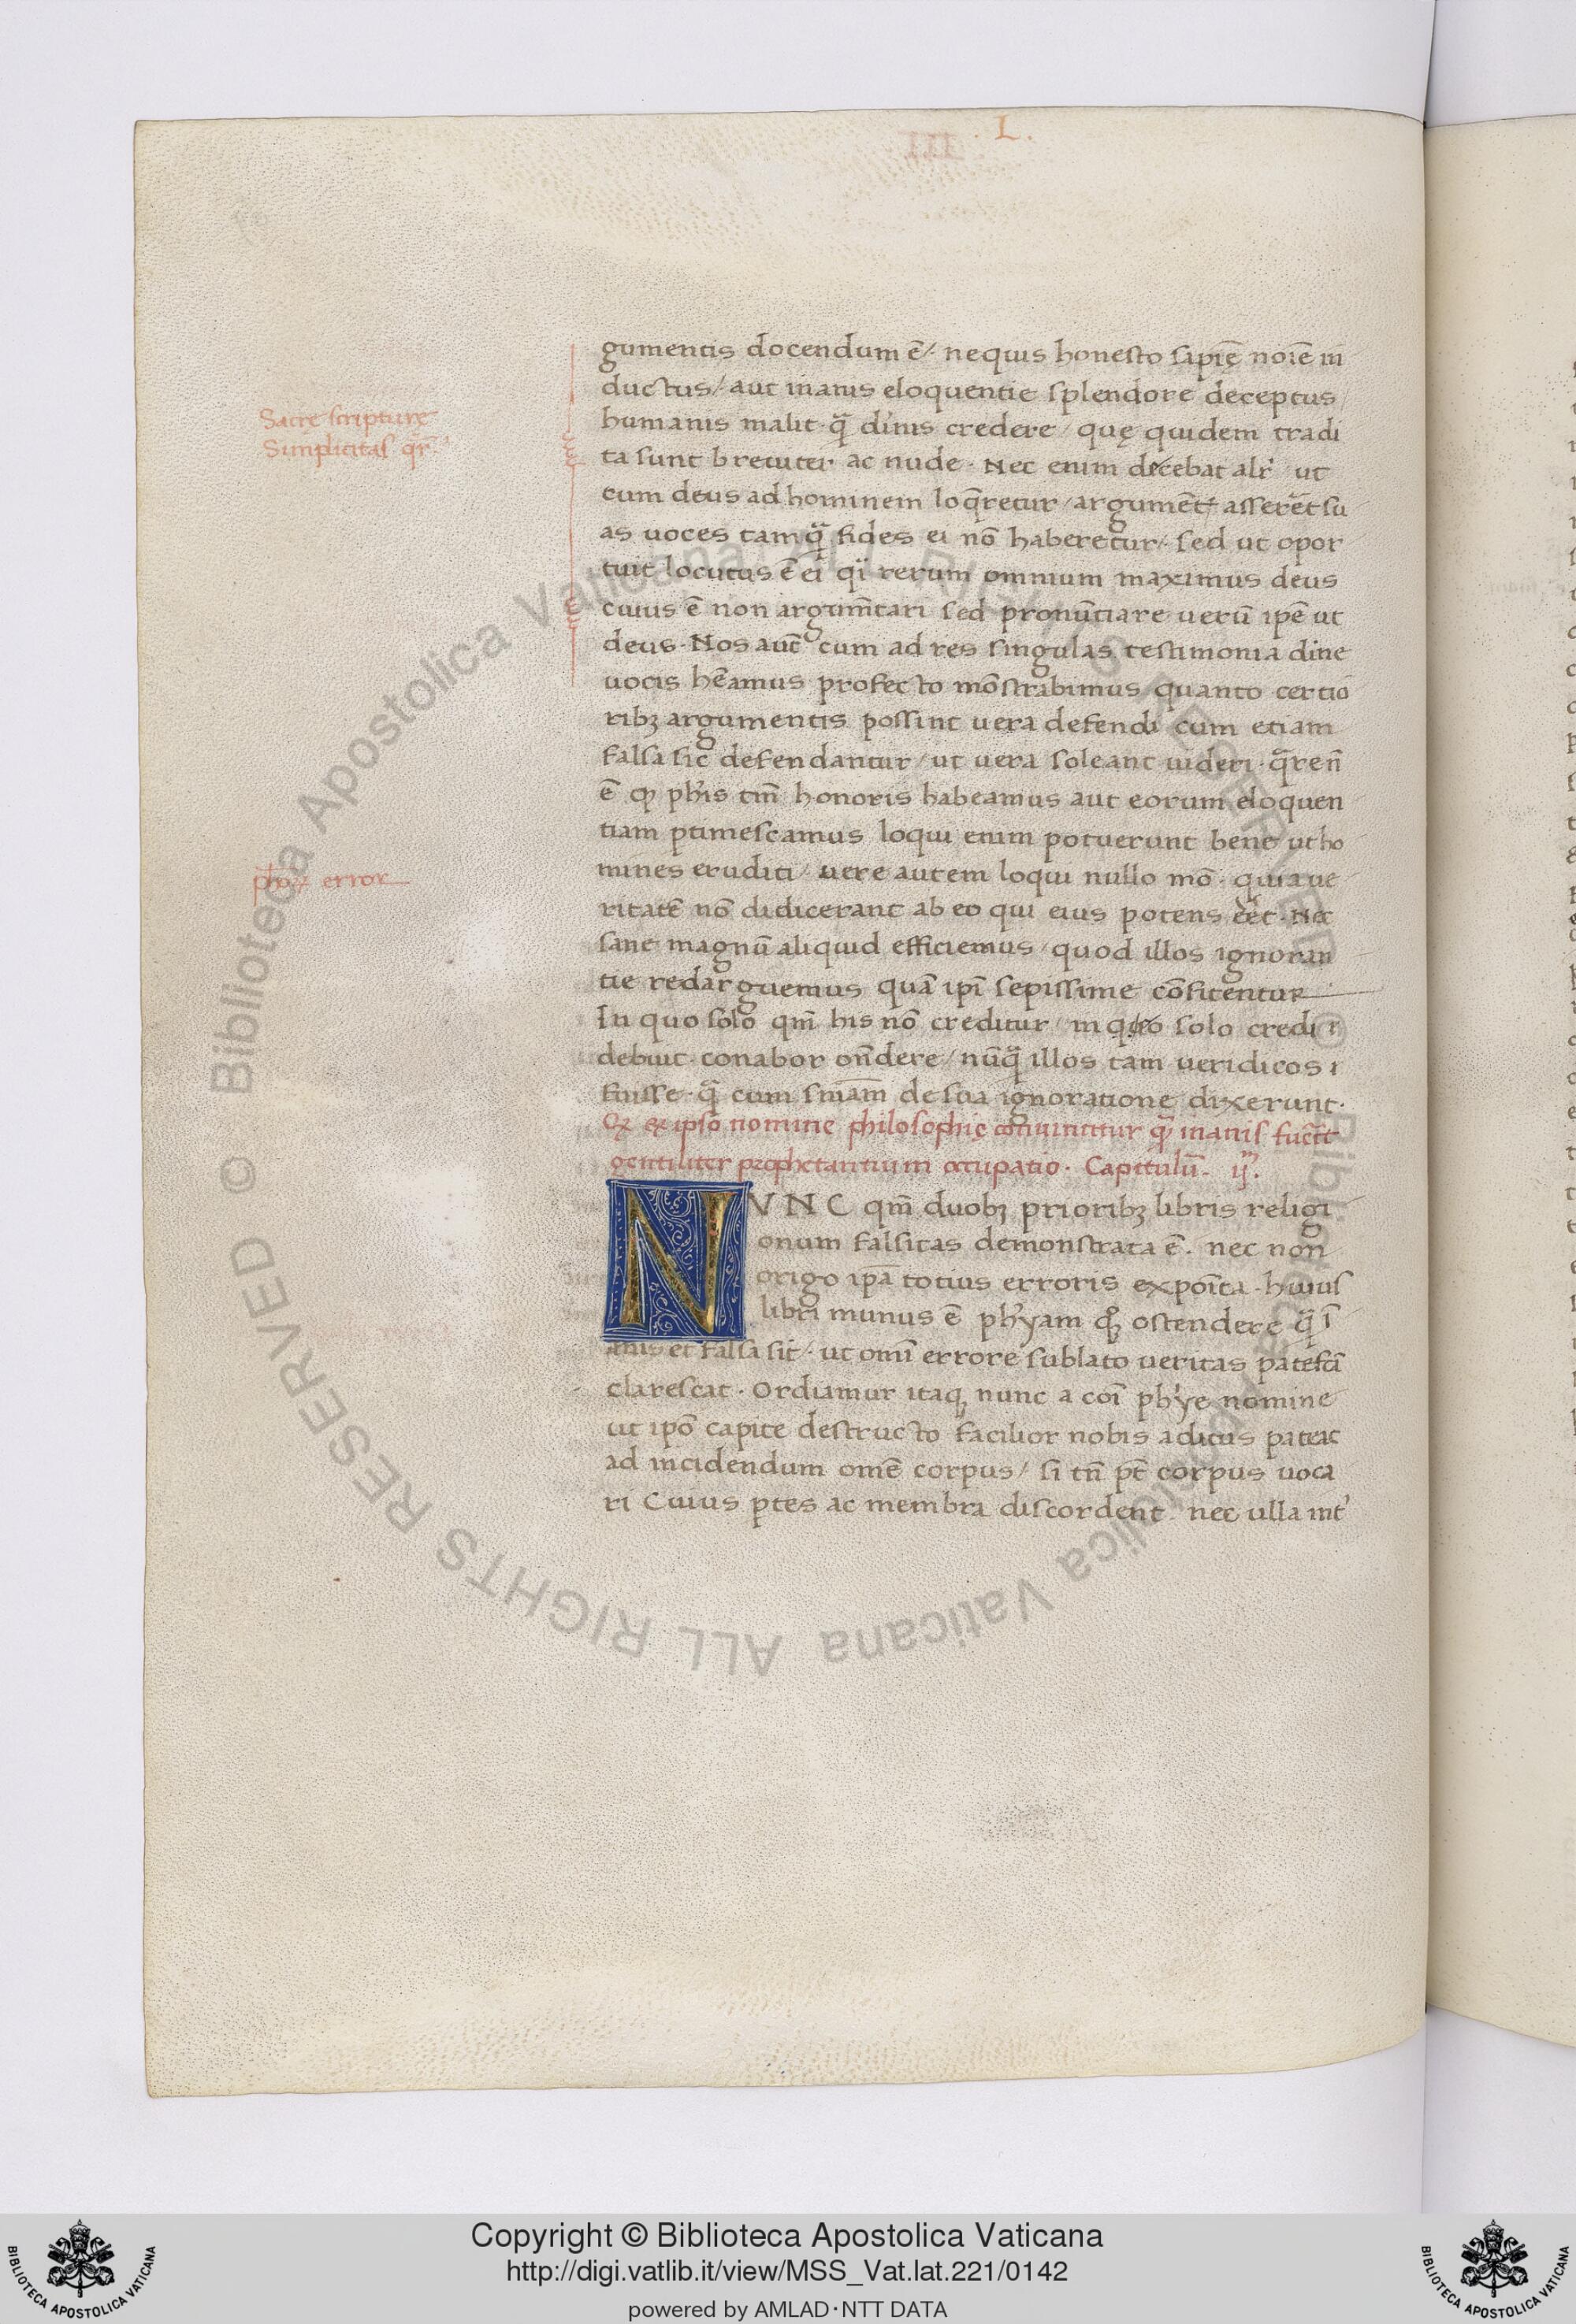 L.
gumentis docendum ē/ nequis honesto sapiẽ noiẽ in
ductus/ aut inanis eloquentie splendore deceptus/
humanis malit q̃ diuĩs credere/ quę quidem tradi
Sacre scripture
Simplicitas q̃r
ta sunt breuiter ac nude. Nec enim decebat alr̃ ut
cum deus ad hominem loq̃retur/ argumẽt asserẽt su
as uoces tamq̃ fides ei nō haberetur/ sed ut opor
tuit locutus ē ei q̃i rerum omnium maximus deus
cuius ē non argum̃tari sed pronũtiare uerũ ip̃e ut
deus. Nos aut̃ cum ad res singulas testimonia diñe
uocis hẽamus profecto mõstrabimus quanto certio
ribꝫ argumentis possint uera defendi cum etiam
falsa sic defendantur/ ut uera soleant uideri. q̃ren̄
ē ꝙ ph̃is tm̃ honoris habeamus aut eorum eloquen
tiam ptimescamus loqui enim potuerunt bene ut ho
ph̃oꝝ error
mines eruditi/ uere autem loqui nullo mō. quia ue
ritatẽ nō didicerant ab eo qui eius potens eẽt. Nec
sane magnũ aliquid efficiemus/ quod illos ignoran
tie redarguemus quã ip̃i sepissime cõfitentur
In quo solo qm̃ his nō creditur/ in quo solo credi
debuit. conabor oñdere/ nũq̃ illos tam ueridicos
fuisse. q̃ cum sniãm de sua ignoratione dixerunt.
Qꝫ ex ipso nomine philosophię conuincitur q̃ inanis fuerit
gentiliter prophetantium occupatio. Capitulũ. ij.
NVNC qm̃ duobꝫ prioribꝫ libris religi
onum falsitas demonstrata ē. nec non
origo ip̃a totius erroris expoĩta. huius
libri munus ē ph̃yam qꝫ ostendere q̃ ĩ
anis et falsa sit. ut omĩ errore sublato ueritas patefc̃a
clarescat. Ordiamur itaqꝫ nunc a cõi ph̃ye nomine
ut ip̃o capite destructo facilior nobis aditus pateat
ad incidendum omẽ corpus/ si tñ pt̃ corpus uoca
ri Cuius ptes ac membra discordent. nec ulla int̉
© Biblioteca Apostolica Vaticana ALL RIGHTS RESERVED
Copyright © Biblioteca Apostolica Vaticana
http://digi.vatlib.it/view/MSS_Vat.lat.221/0142
powered by AMLAD·NTT DATA
BIBLIOTECA APOSTOLICA VATICANA
BIBLIOTECA APOSTOLICA VATICANA